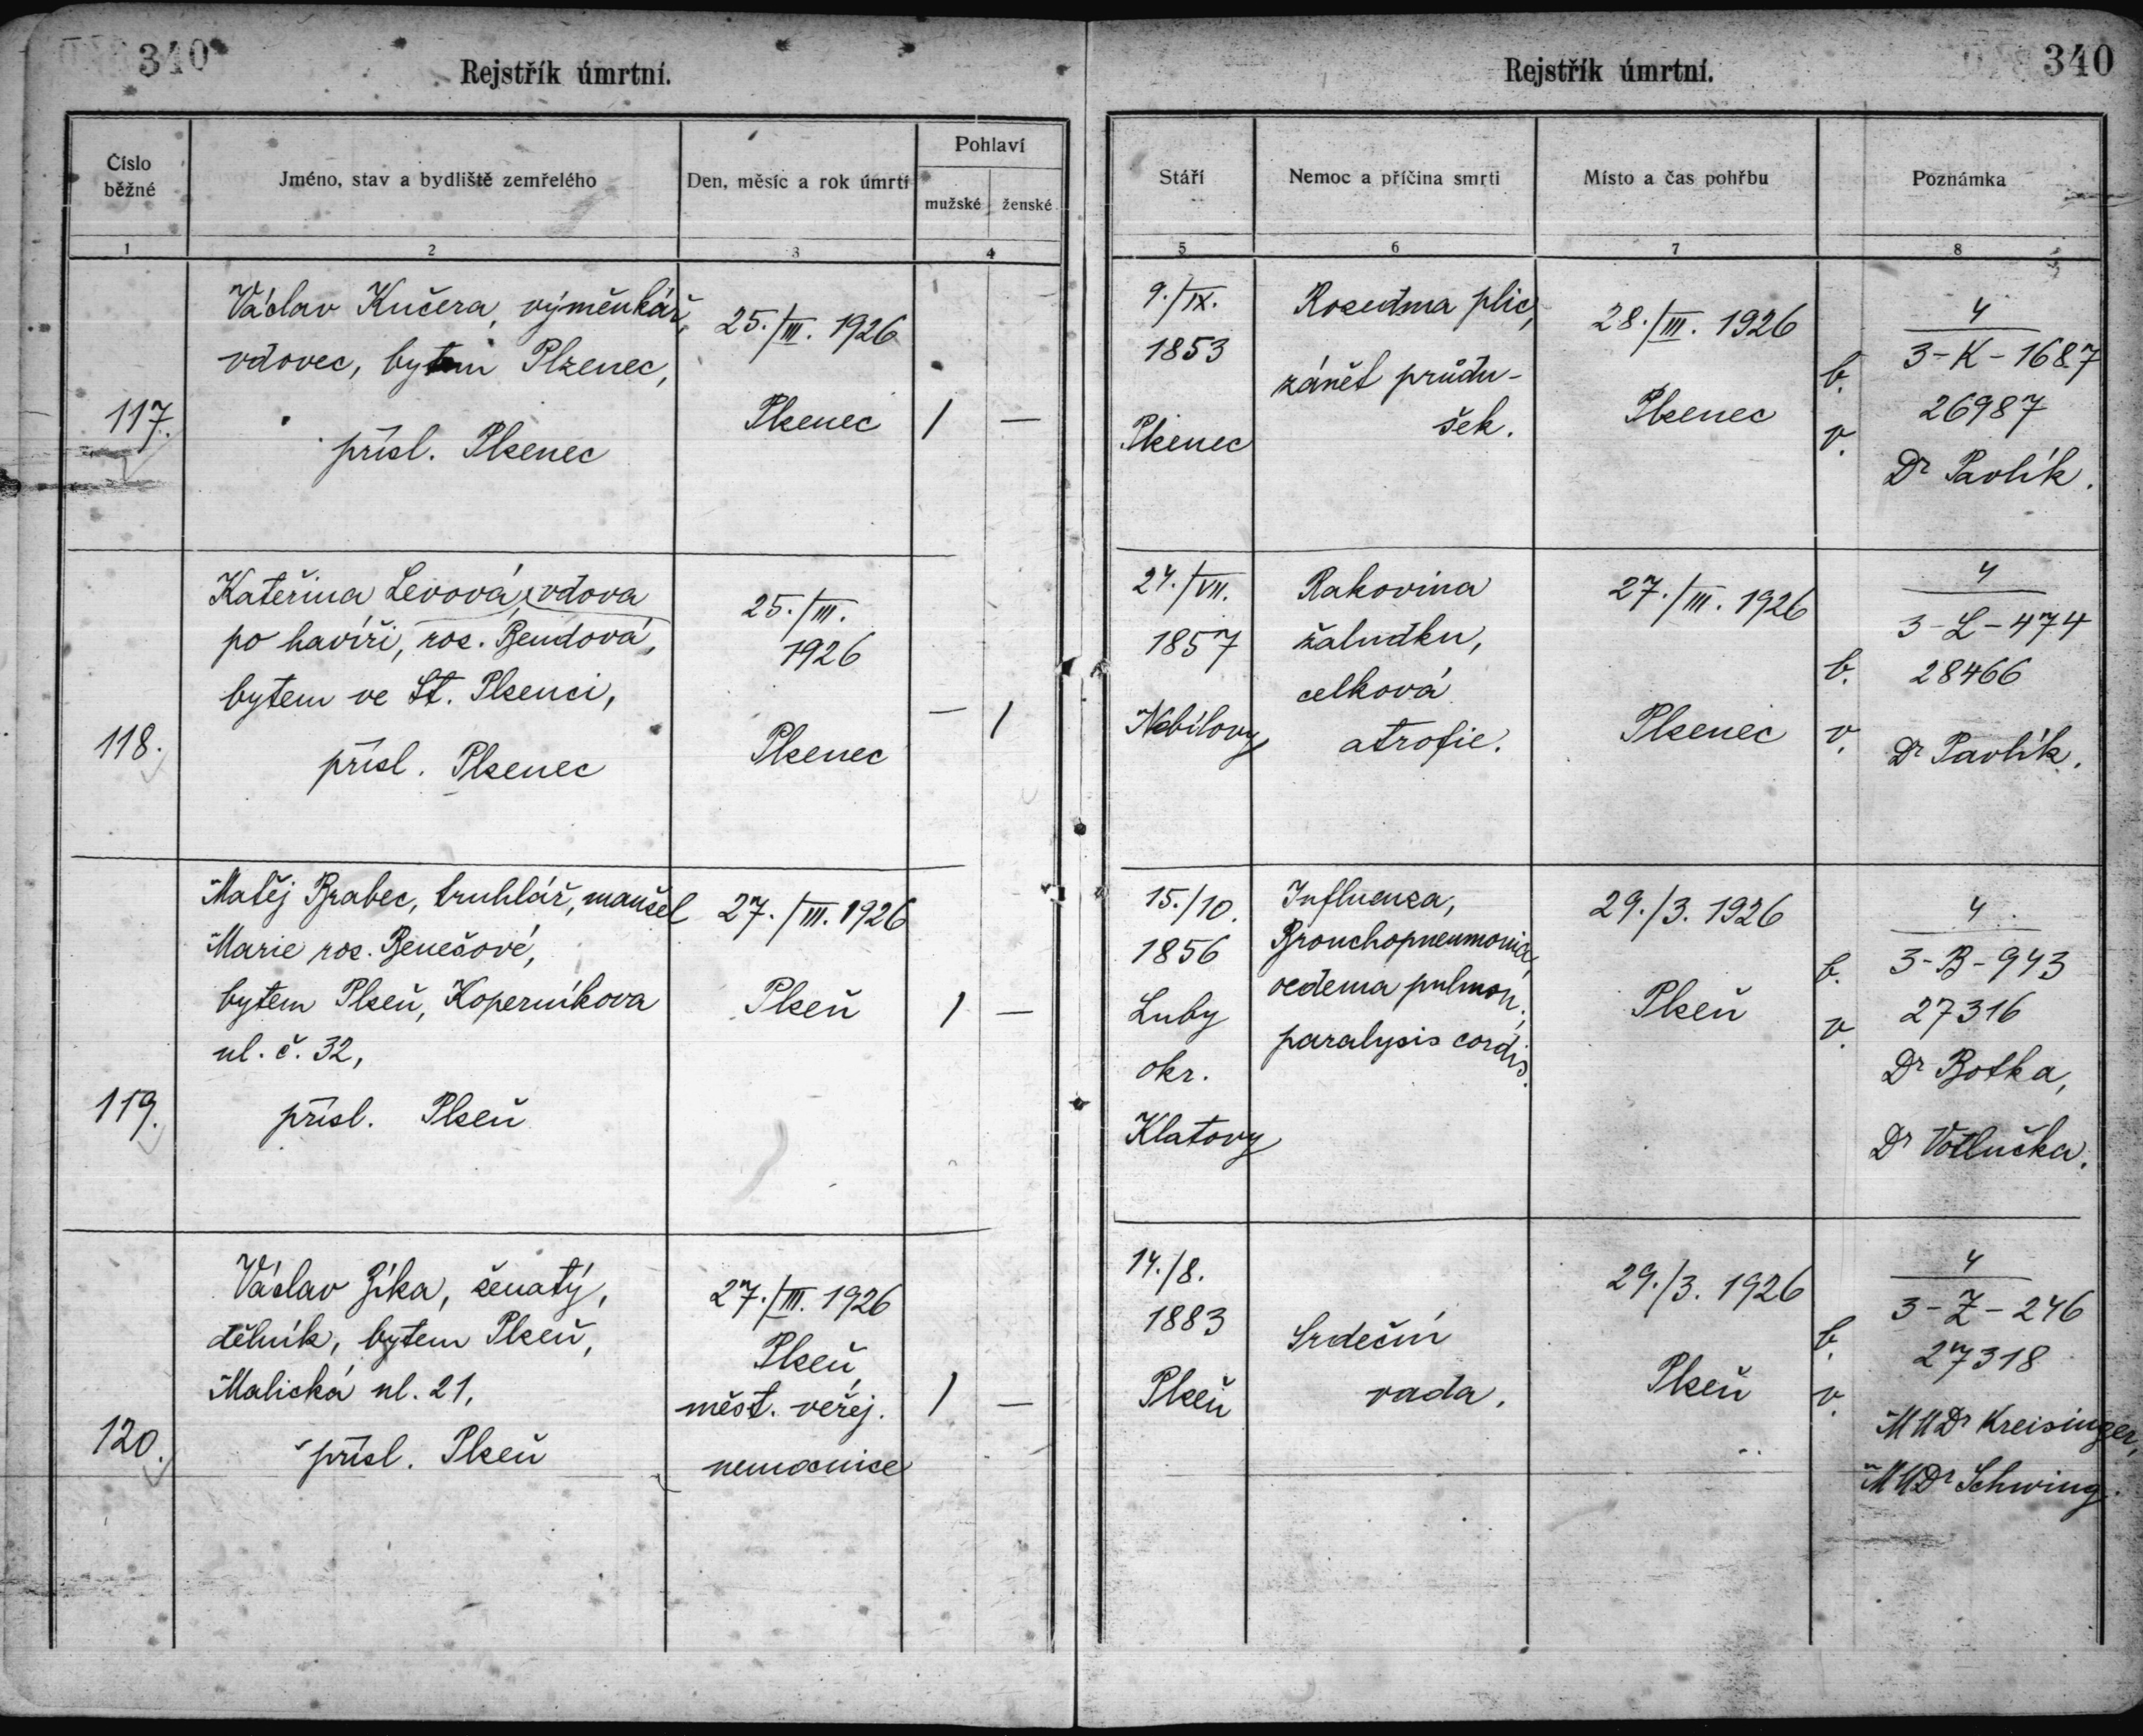 340
Rejstřík úmrtní.
Číslo běžné
Jméno, stav a bydliště zemřelého
Den, měsíc a rok úmrtí
Pohlaví
mužské
ženské
1
2
3
4
117.
Václav Kučera, výměnkář,
vdovec, bytem Plzenec,
přísl. Plzenec
25./III. 1926
Plzenec
/
—
118.
Kateřina Levová, vdova
po havíři, roz. Bendová,
bytem ve St. Plzenci,
přísl. Plzenec
25./III.
1926
Plzenec
—
/
119.
Matěj Brabec, truhlář, manžel
Marie roz. Benešové,
bytem Plzeň, Koperníkova
ul. č. 32,
přísl. Plzeň
27./III. 1926
Plzeň
/
—
120.
Václav Zíka, ženatý,
dělník, bytem Plzeň,
Malická ul. 21,
přísl. Plzeň
27./III. 1926
Plzeň,
měst. veřej.
nemocnice
/
—
340
Rejstřík úmrtní.
Stáří
Nemoc a příčina smrti
Místo a čas pohřbu
Poznámka
5
6
7
8
9./IX.
1853
Plzenec
Rozedma plic,
zánět průdu-
šek.
28./III. 1926
Plzenec
b.
v.
4
3-K-1687
26987
Dr Pavlík.
24./VII.
1857
Nebílovy
Rakovina
žaludku,
celková
atrofie.
27./III. 1926
Plzenec
b.
v.
4
3-L-474
28466
Dr Pavlík.
15./10.
1856
Luby
okr.
Klatovy
Influenza,
Bronchopneumonia,
oedema pulmon.,
paralysis cordis.
29./3. 1926
Plzeň
b.
v.
4
3-B-943
27316
Dr Botka,
Dr Votlučka.
14./8.
1883
Plzeň
Srdeční
vada.
29./3. 1926
Plzeň
b.
v.
4
3-Z-246
27318
MUDr Kreisinger,
MUDr Schwing.